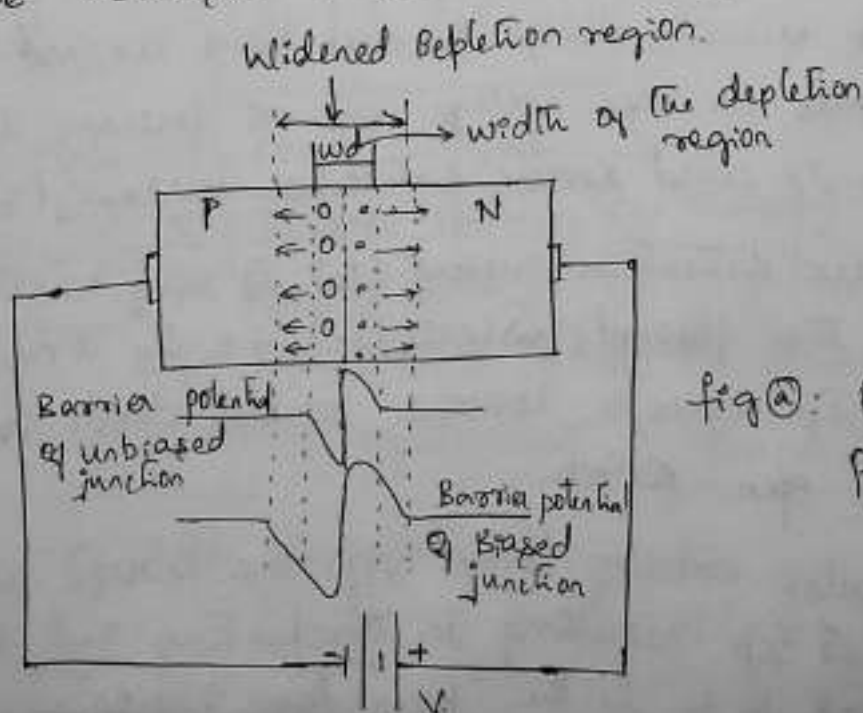 Widened Bepletion region.
Wd
width of the depletion
region
P
N
Barrier potential
of unbiased
junction
fig ⓐ:
Barrier potential
of Biased
junction
- +
V